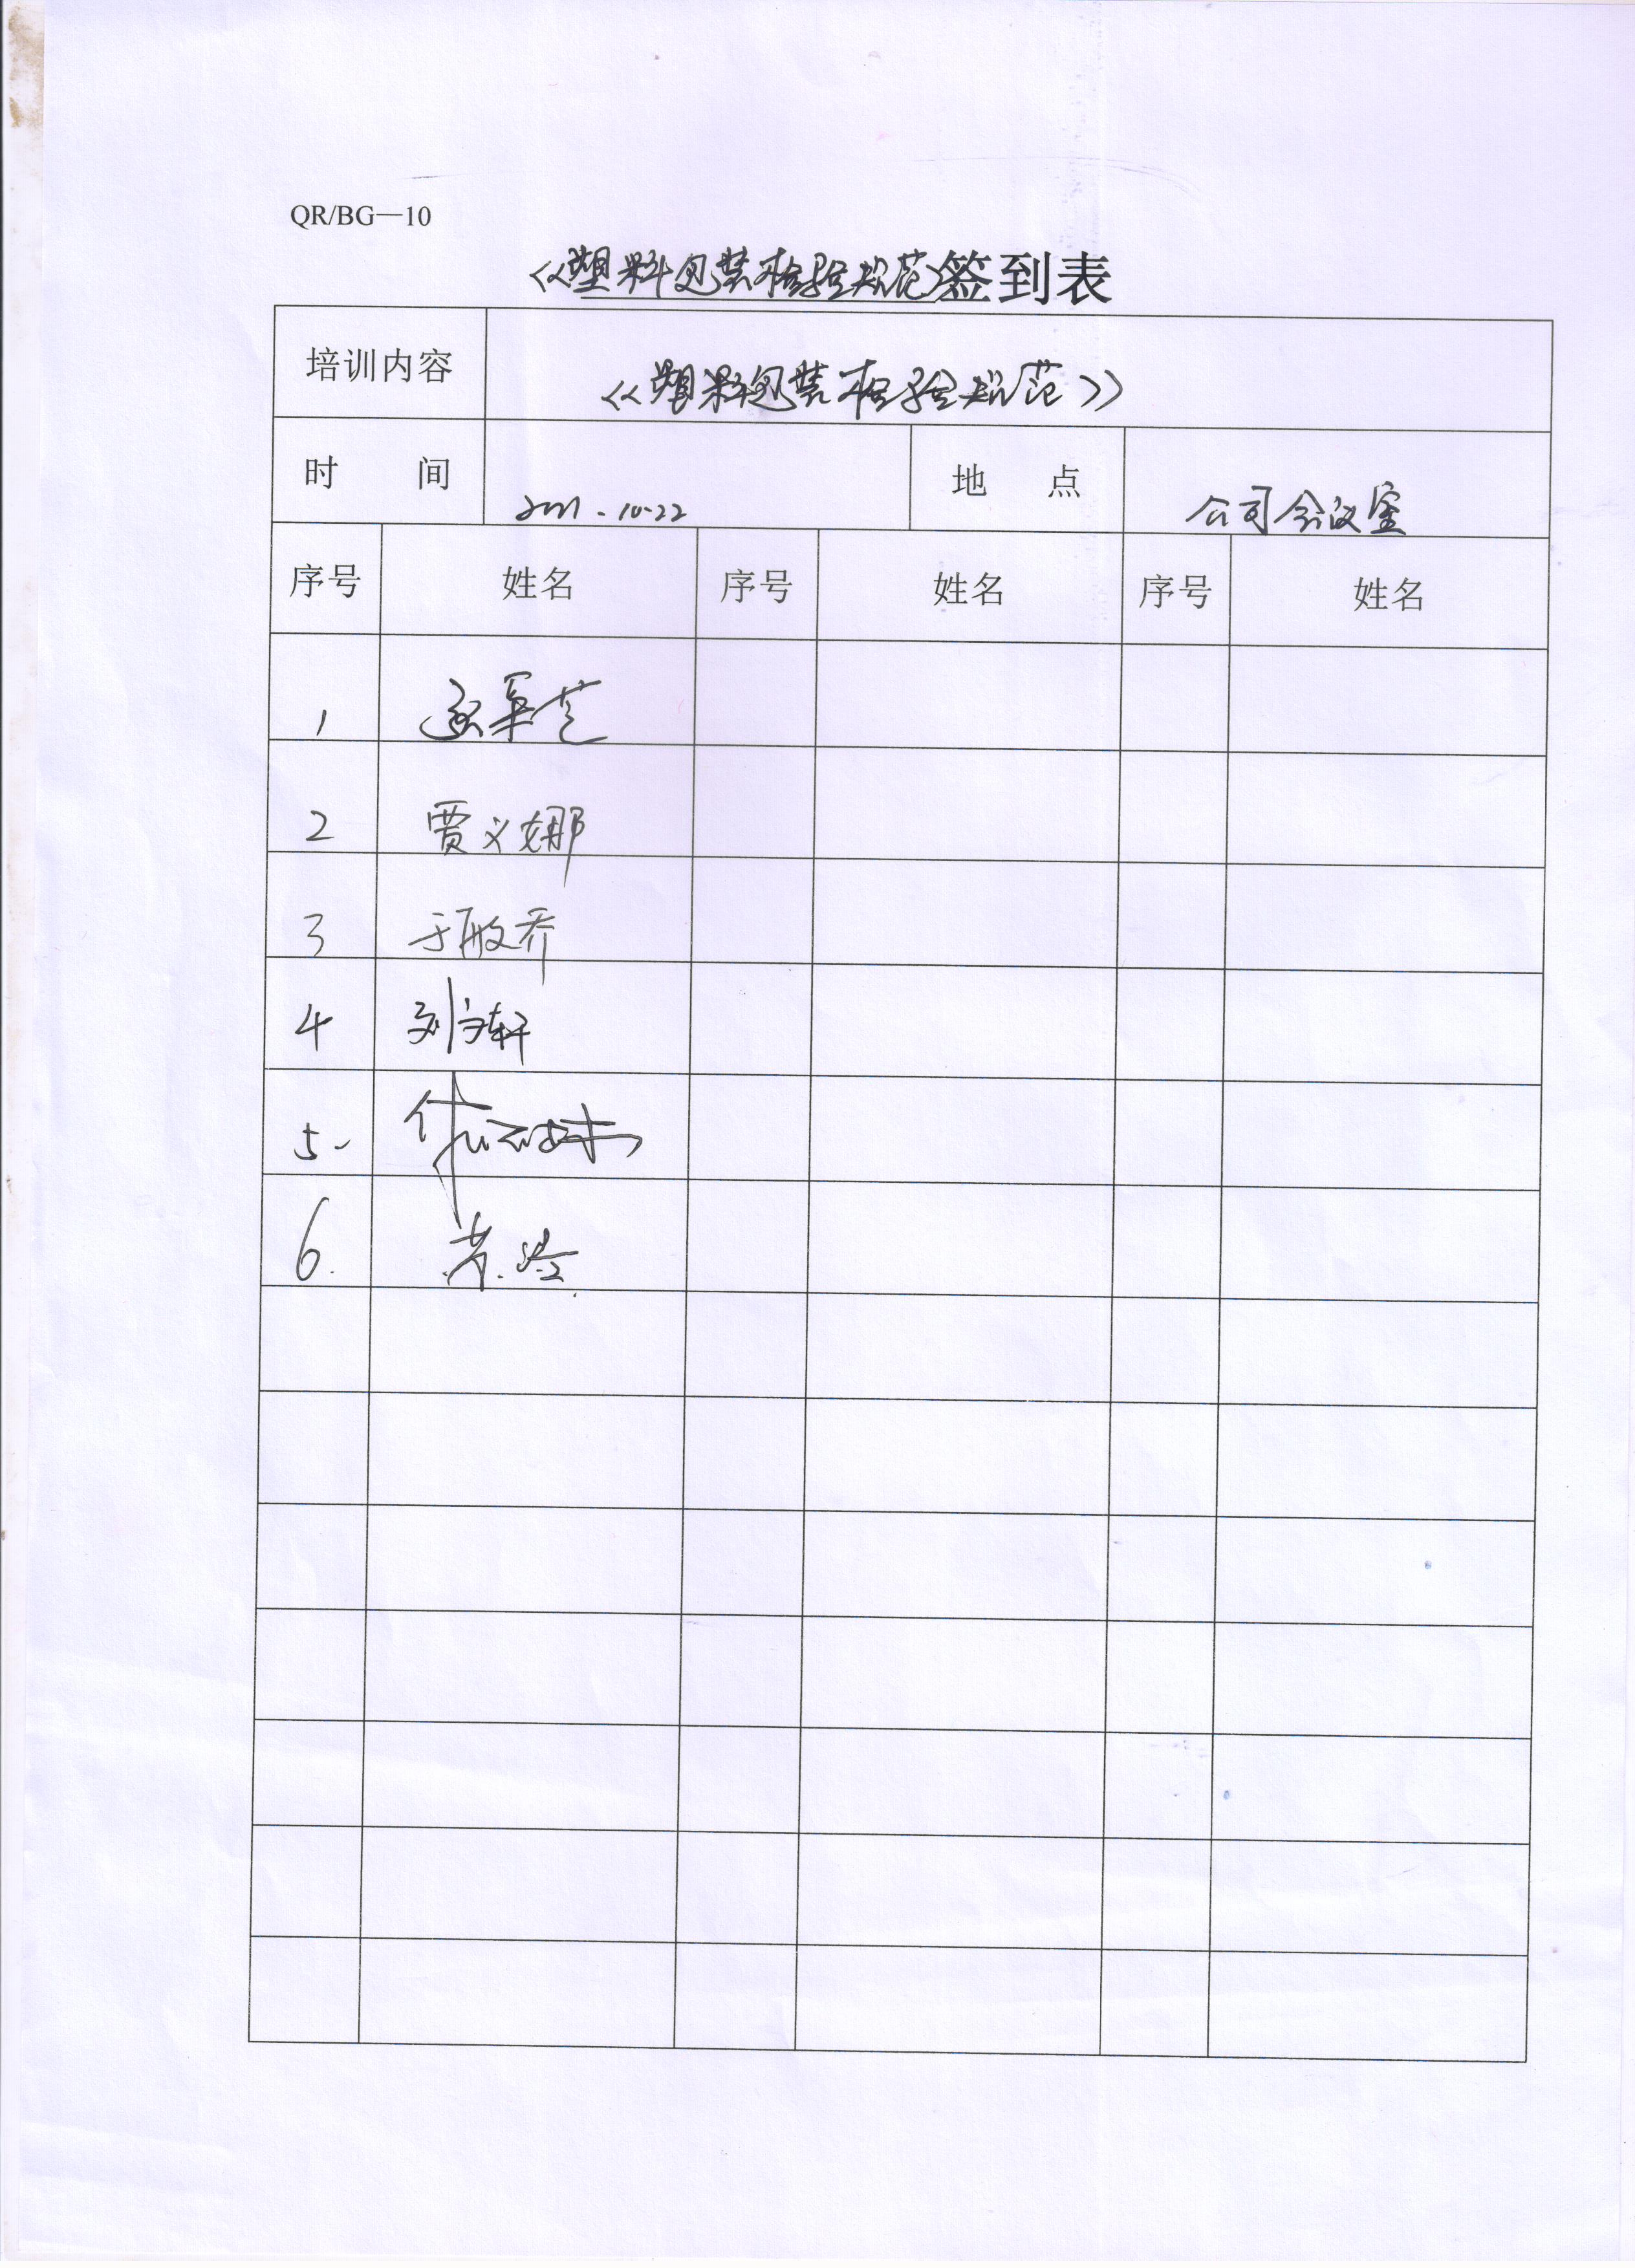 QR/BG—10
《塑料包装检验规范》签到表
培训内容
《塑料包装检验规范》
时 间
2021.10.22
地 点
公司会议室
序号 姓名 序号 姓名 序号 姓名
1
2 贾义娜
3 于敏乔
4 刘文轩
5.
6.